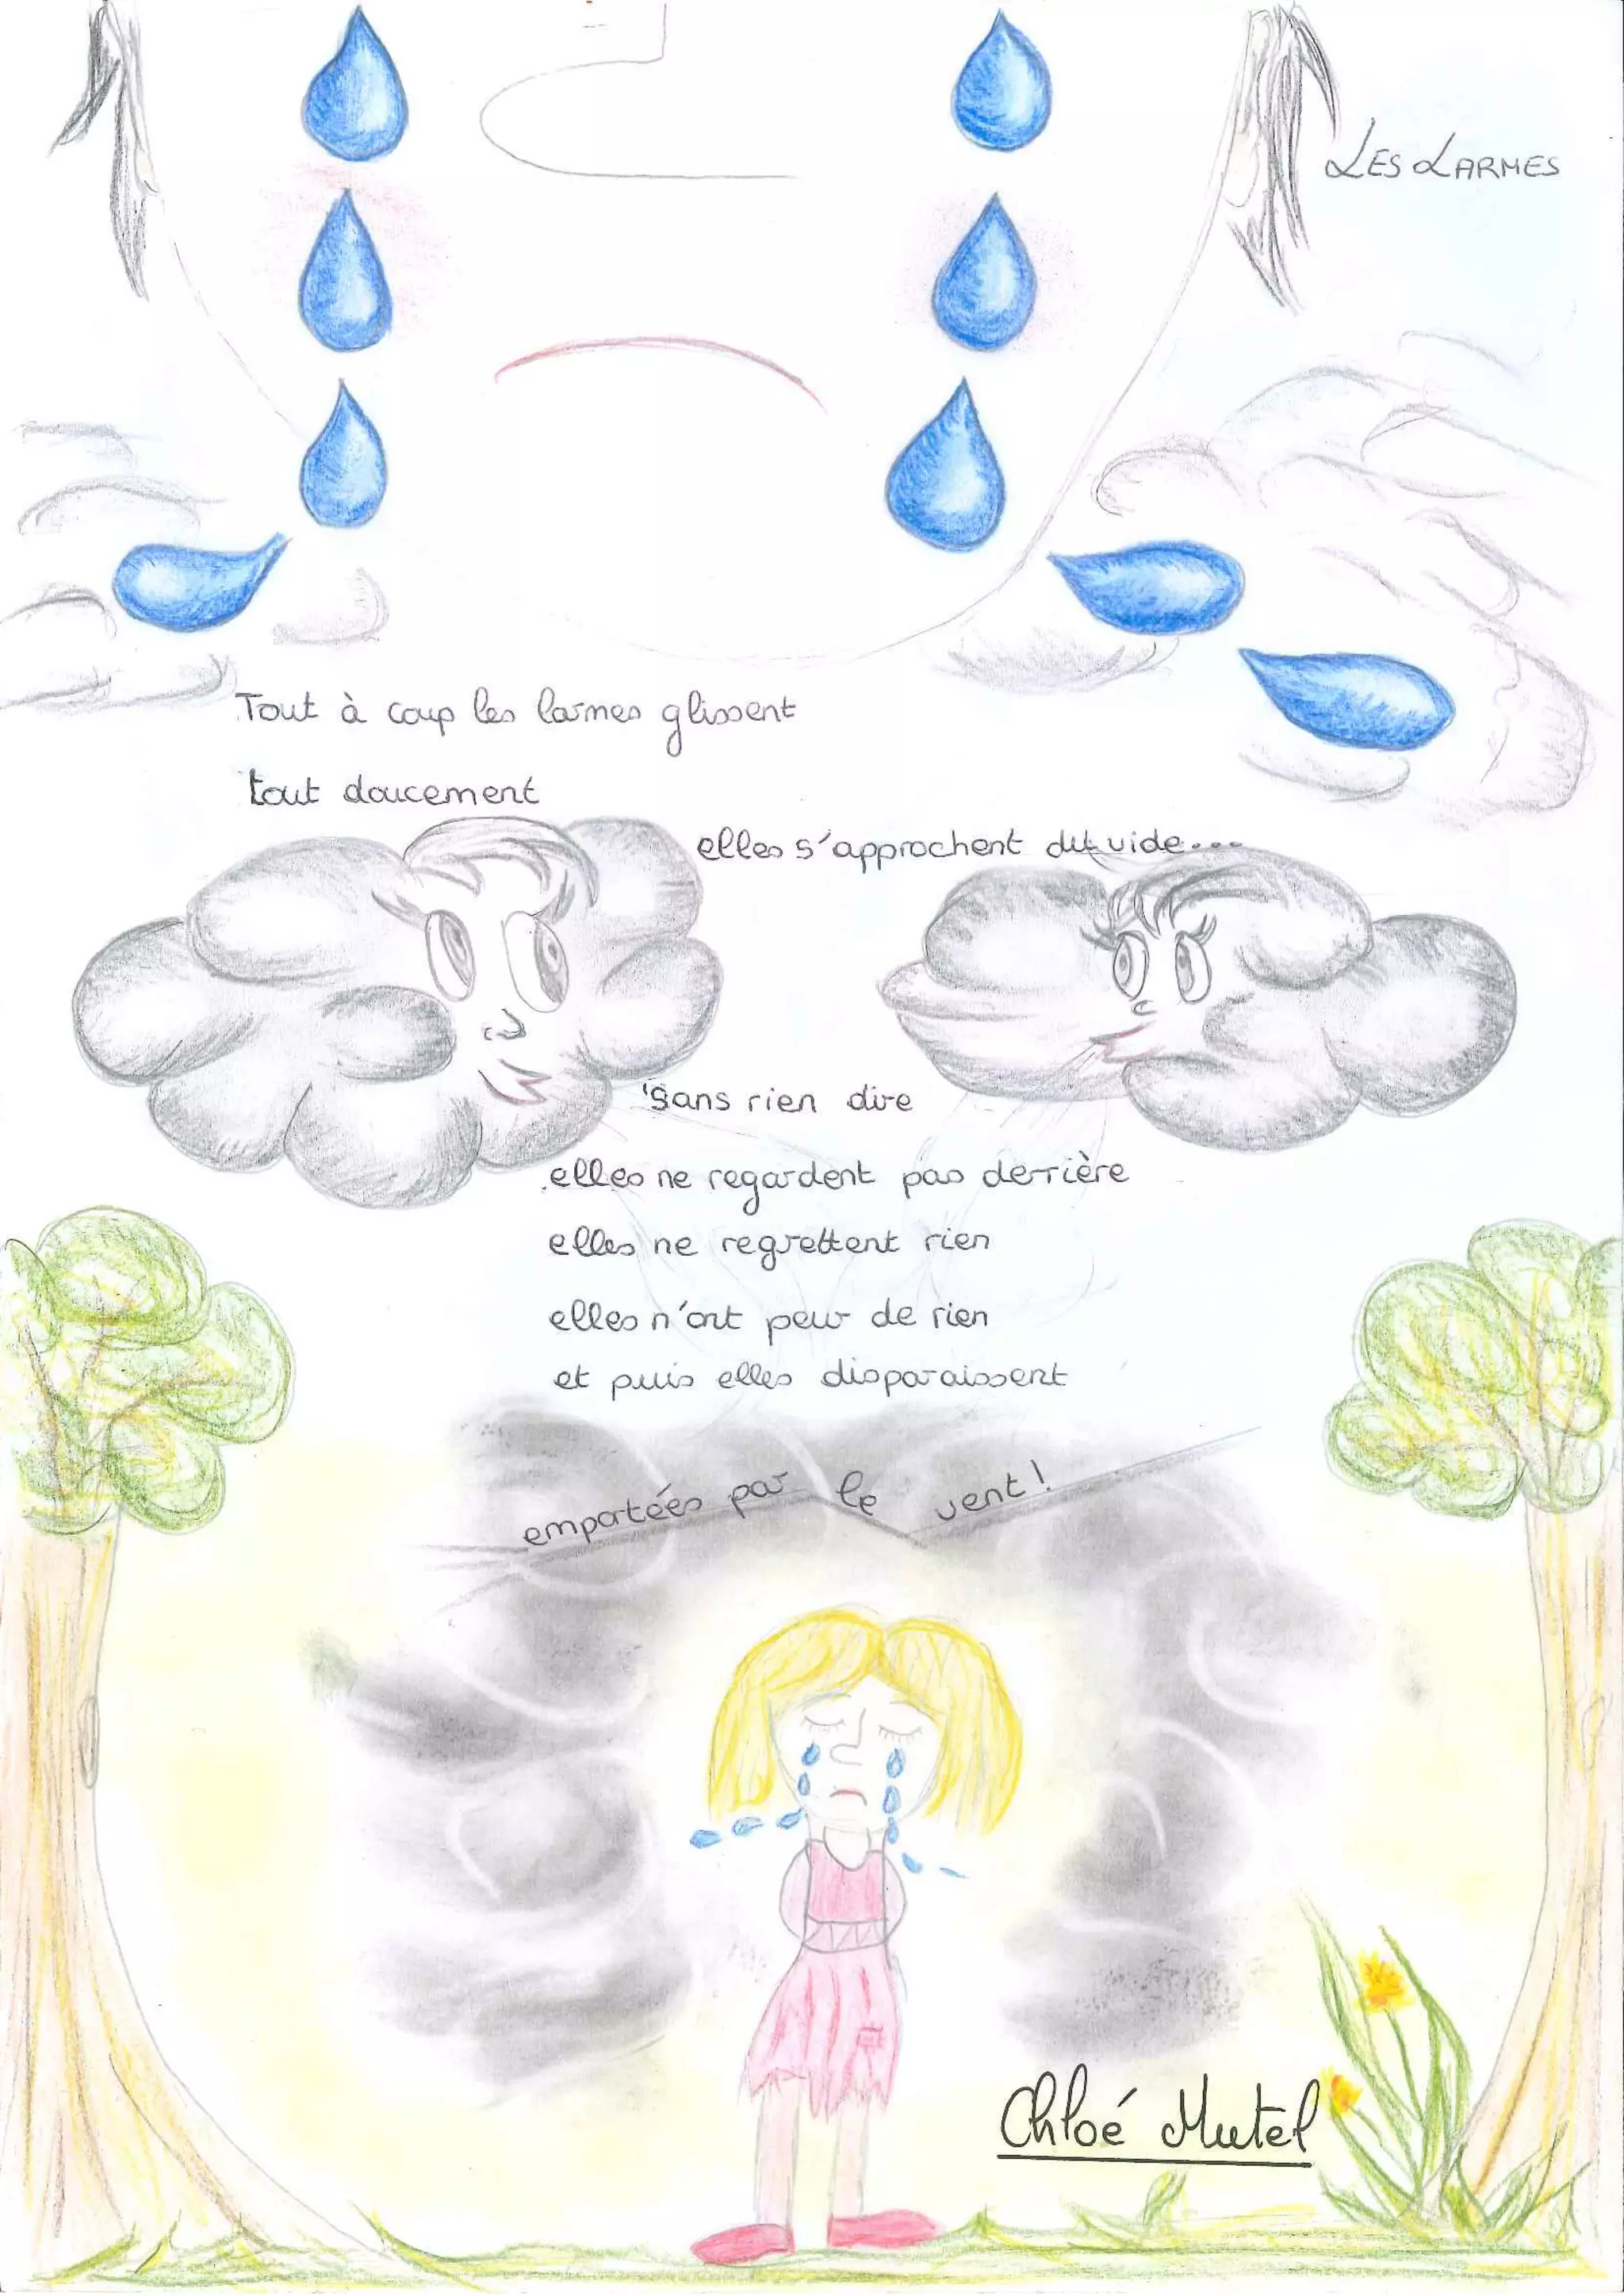 LES LARMES
Tout à coup les larmes glissent
tout doucement
elles s'approchent du vide...
Sans rien dire
elles ne regardent pas derrière
elles ne regrettent rien
elles n'ont peur de rien
et puis elles disparaissent
emportées par le vent!
Chloé Mutel